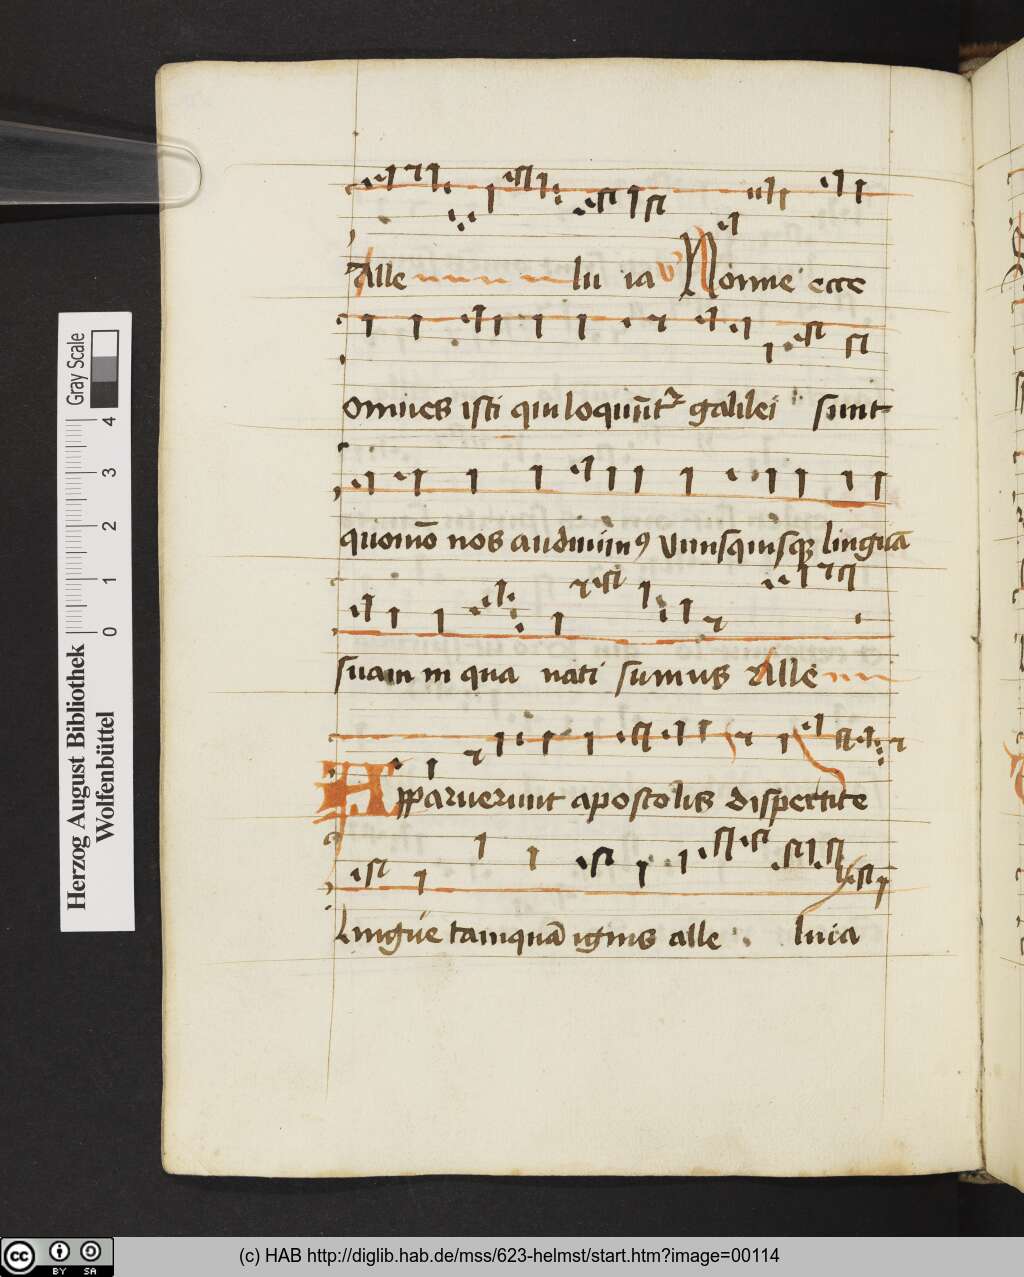 Alle lu ia v Nonne ecce
omnes isti qui loqūnt᷑ galilei sunt
quomō nos audiuimꝰ Vnusquisqꝫ linguā
suam in qua nati sumus Alle
Apparuerunt apostolis dispertite
Lingue tamquā ignis alle luia
Gray Scale
0 1 2 3 4
Herzog August Bibliothek
Wolfenbüttel
cc BY SA
(c) HAB http://diglib.hab.de/mss/623-helmst/start.htm?image=00114